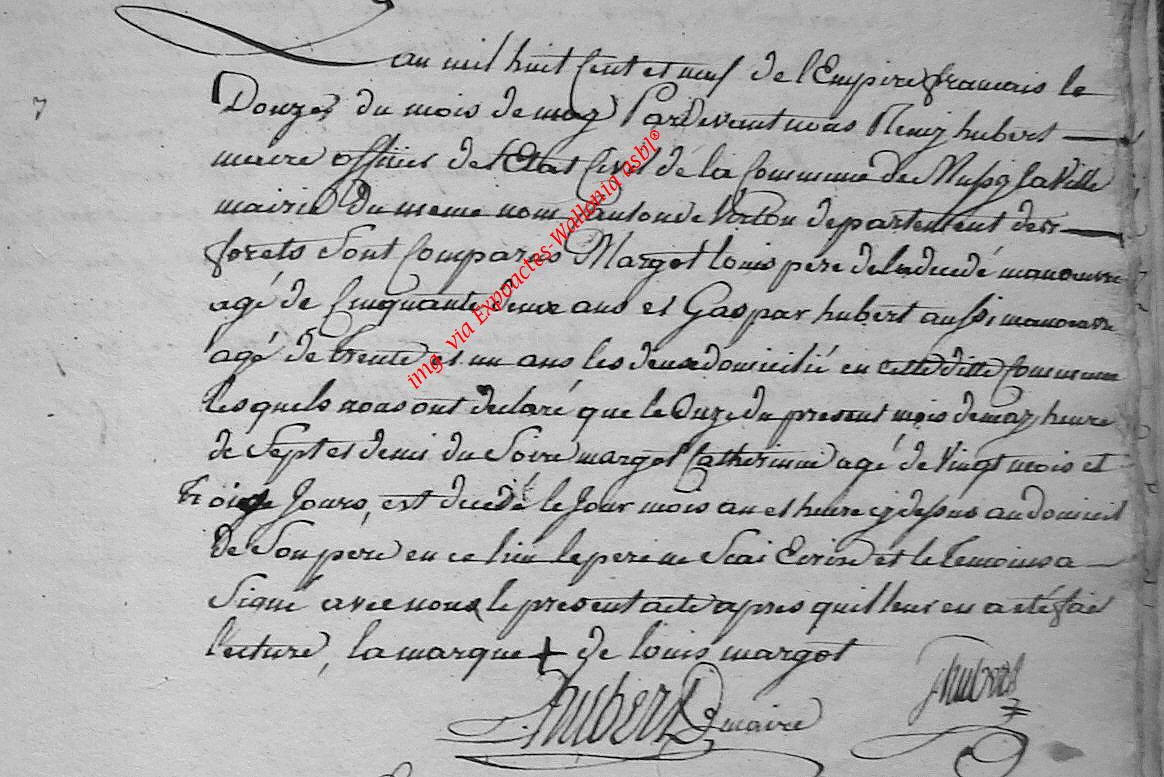 Lan mil huit Cent et neuf de l'Empire francais le
Douze du mois de may Pardevant nous Remy hubert
maire officier de l'Etat Civil de la Commune de Mussy la Ville
mairie du meme nom Canton de Virton departement des
forets Sont Comparus Margot louis pere de la decedé manoeuvre
agé de Cinquante deux ans et Gaspar hubert aussi manoeuvre
agé de trente et un ans les deux domicilié en cette ditte Commune
Lesquels nous ont declaré que le Onze du present mois de may heure
de Sept et demi du Soire margot Catherinne agé de Vingt mois et
trois Jours, est decedé le Jour mois an et heure cy dessus au domicil
de Son pere en ce lieu le pere ne Scai Ecrire et le temoins a
Signé avec nous le present acte apres quil leur en a eté fait
lecture, la marque + de louis margot
Hubert maire
ghubert
7
img. via Expoactes-Wallonia asbl®